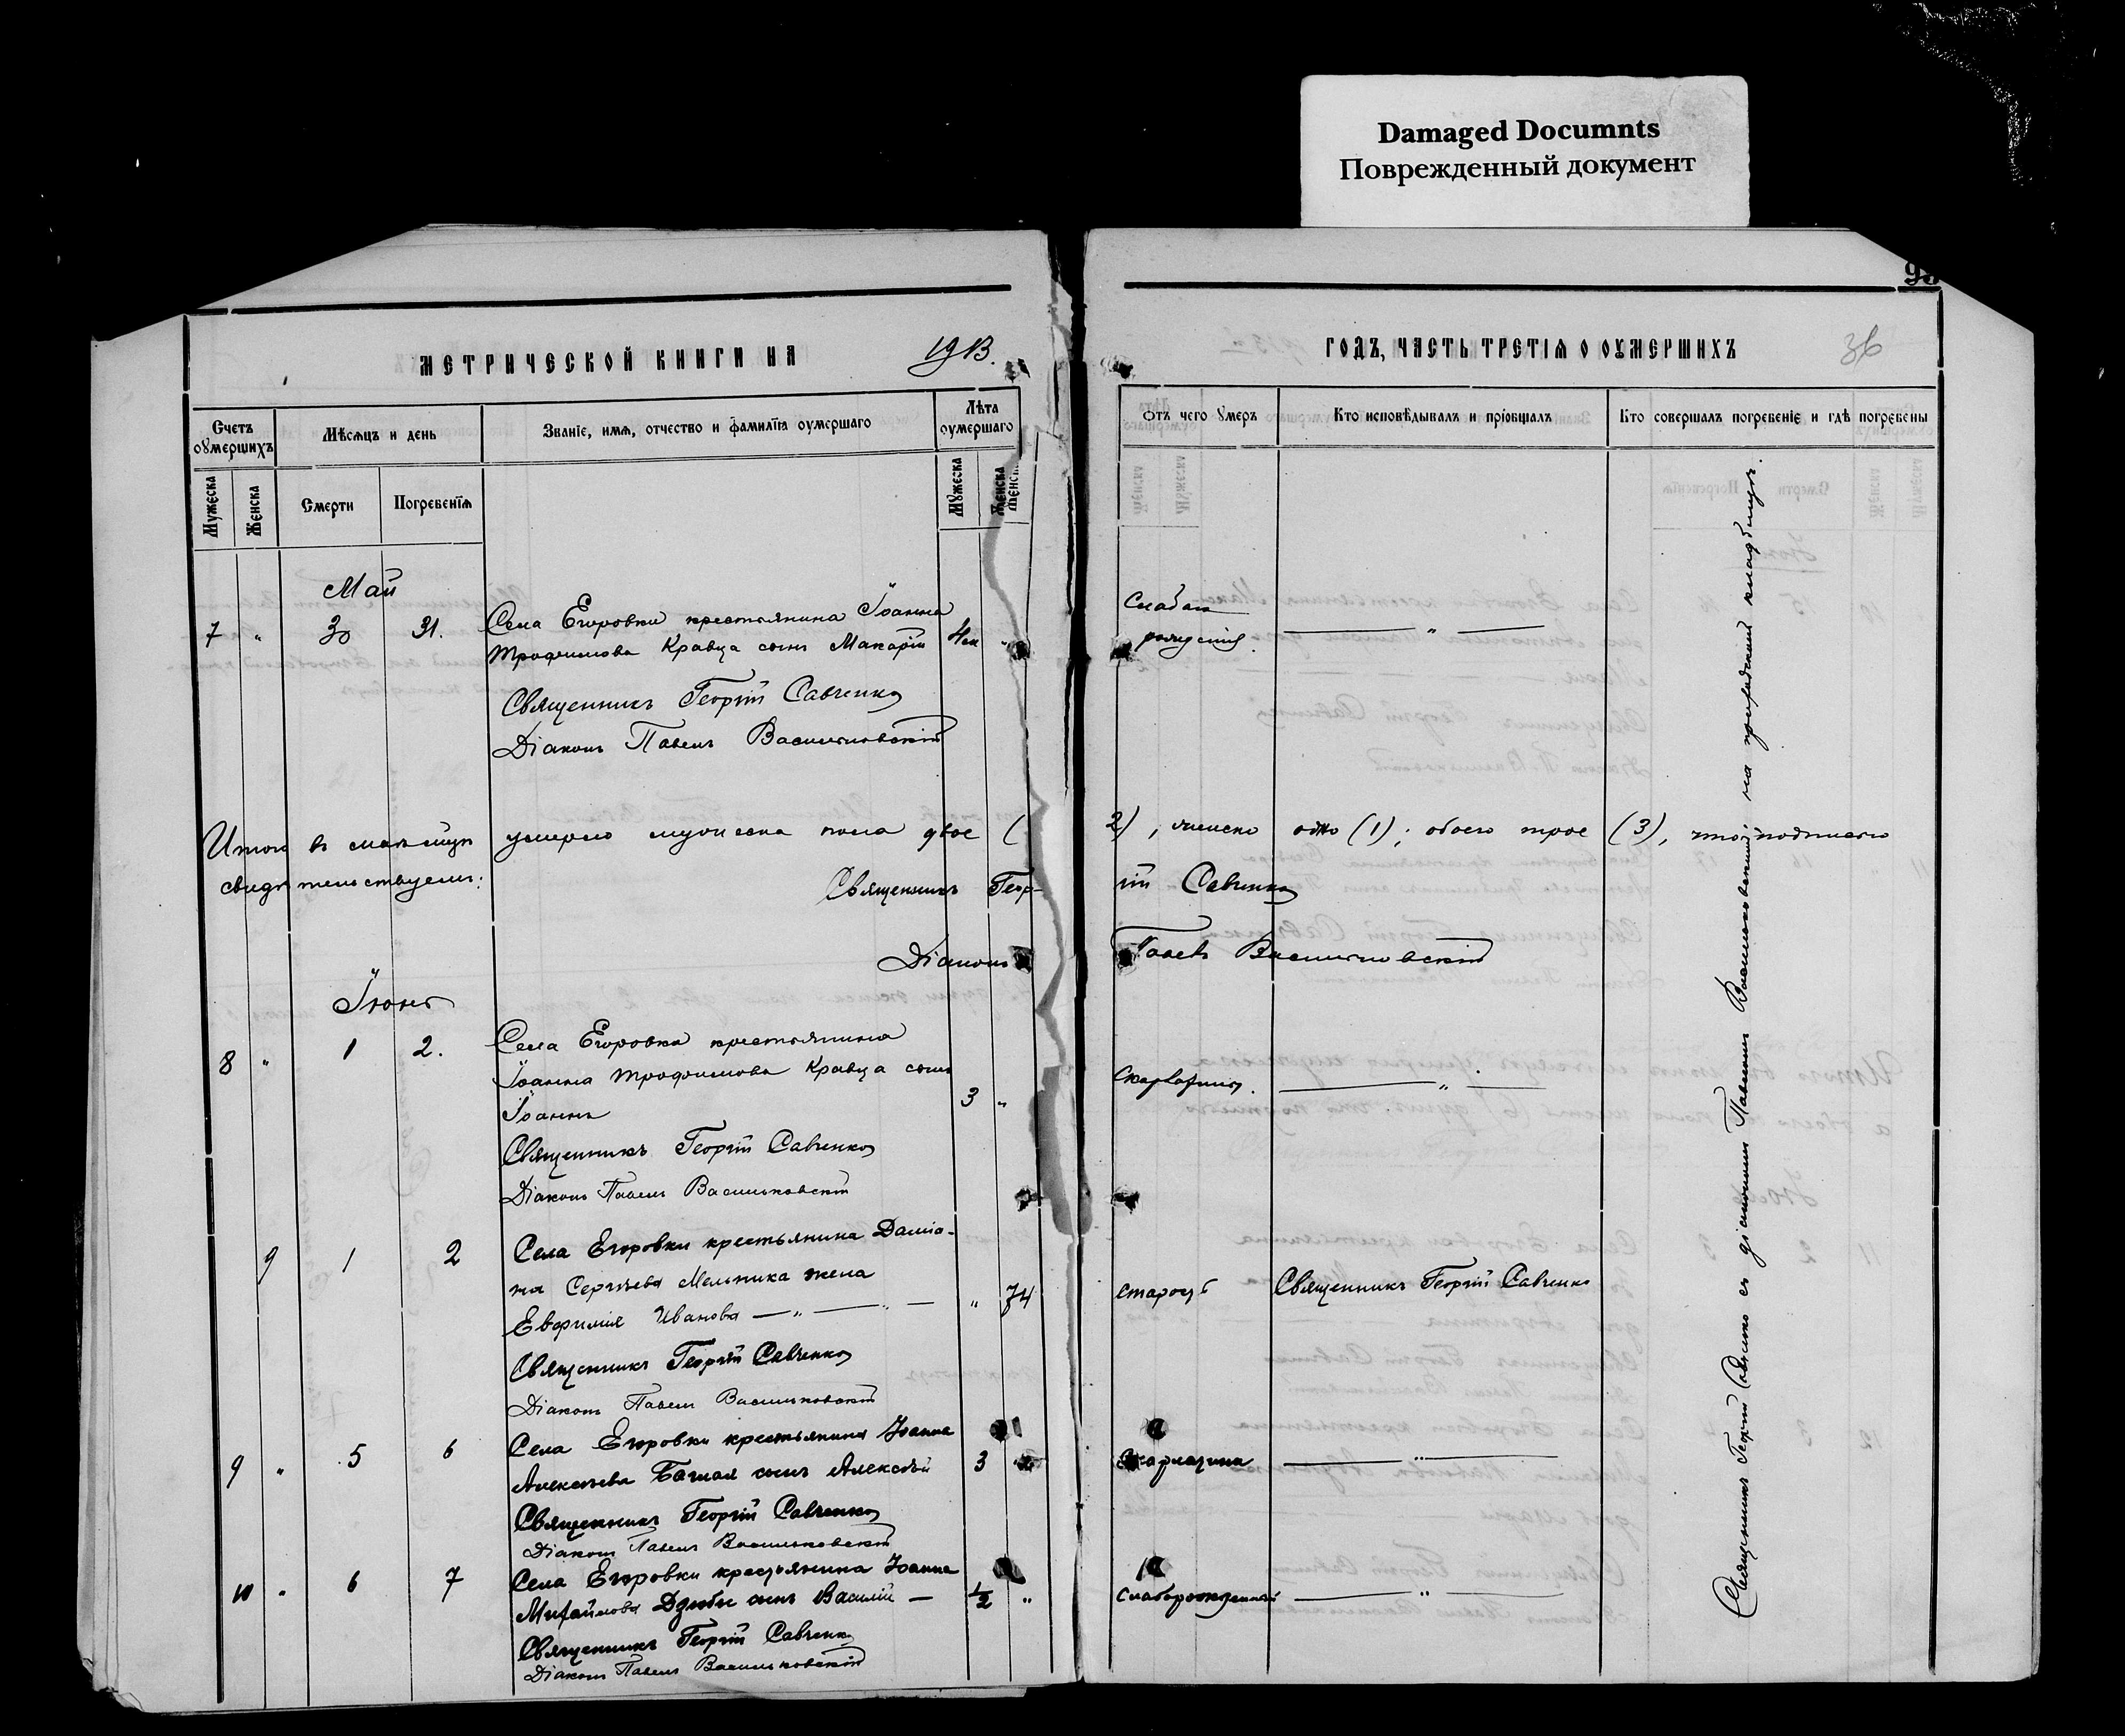 Damaged Documnts
Поврежденный документ
МЕТРИЧЕСКОЙ КНИГИ НА 1913.
Счетъ оумершихъ
Мѣсяцъ и день
Званіе, имя, отчество и фамилія оумершаго
Лѣта оумершаго
Мужеска
Женска
Смерти
Погребенія
Мужеска
Женска
Май
7 " 30 31. Села Егоровки крестьянина Іоанна
Трофимова Кравца сынъ Макарій
Священникъ Георгій Савченко
Діаконъ Павелъ Васильковскій
Итого въ маѣ умерло мужеска пола двое (
свидѣтельствуемъ:
Священникъ Геор-
Діаконъ
Іюнь
8 " 1 2. Села Егоровки крестьянина
Іоанна Трофимова Кравца сынъ
Іоаннъ 3 "
Священникъ Георгій Савченко
Діаконъ Павелъ Васильковскій
9 1 2 Села Егоровки крестьянина Даміа-
на Сергѣева Мельника жена
Евфимія Иванова " 74
Священникъ Георгій Савченко
Діаконъ Павелъ Васильковскій
9 " 5 6 Села Егоровки крестьянина Іоанна
Алексѣева сынъ Алексѣй 3
Священникъ Георгій Савченко
Діаконъ Павелъ Васильковскій
10 " 6 7 Села Егоровки крестьянина Іоанна
Михайлова Дзюбы сынъ Василій 1/2 "
Священникъ Георгій Савченко
Діаконъ Павелъ Васильковскій
ГОДЪ, ЧАСТЬ ТРЕТІЯ О ОУМЕРШИХЪ
36
Отъ чего умеръ
Кто исповѣдывалъ и пріобщалъ
Кто совершалъ погребеніе и гдѣ погребены
"
2), женска одно (1); обоего трое (3), что подписью
гій Савченко
Павелъ Васильковскій
Скарлатина. "
старость Священникъ Георгій Савченко
Скарлатина "
слаборожденный "
Священникъ Георгій Савченко съ діакономъ Павломъ Васильковскимъ, на приходскомъ кладбищѣ.